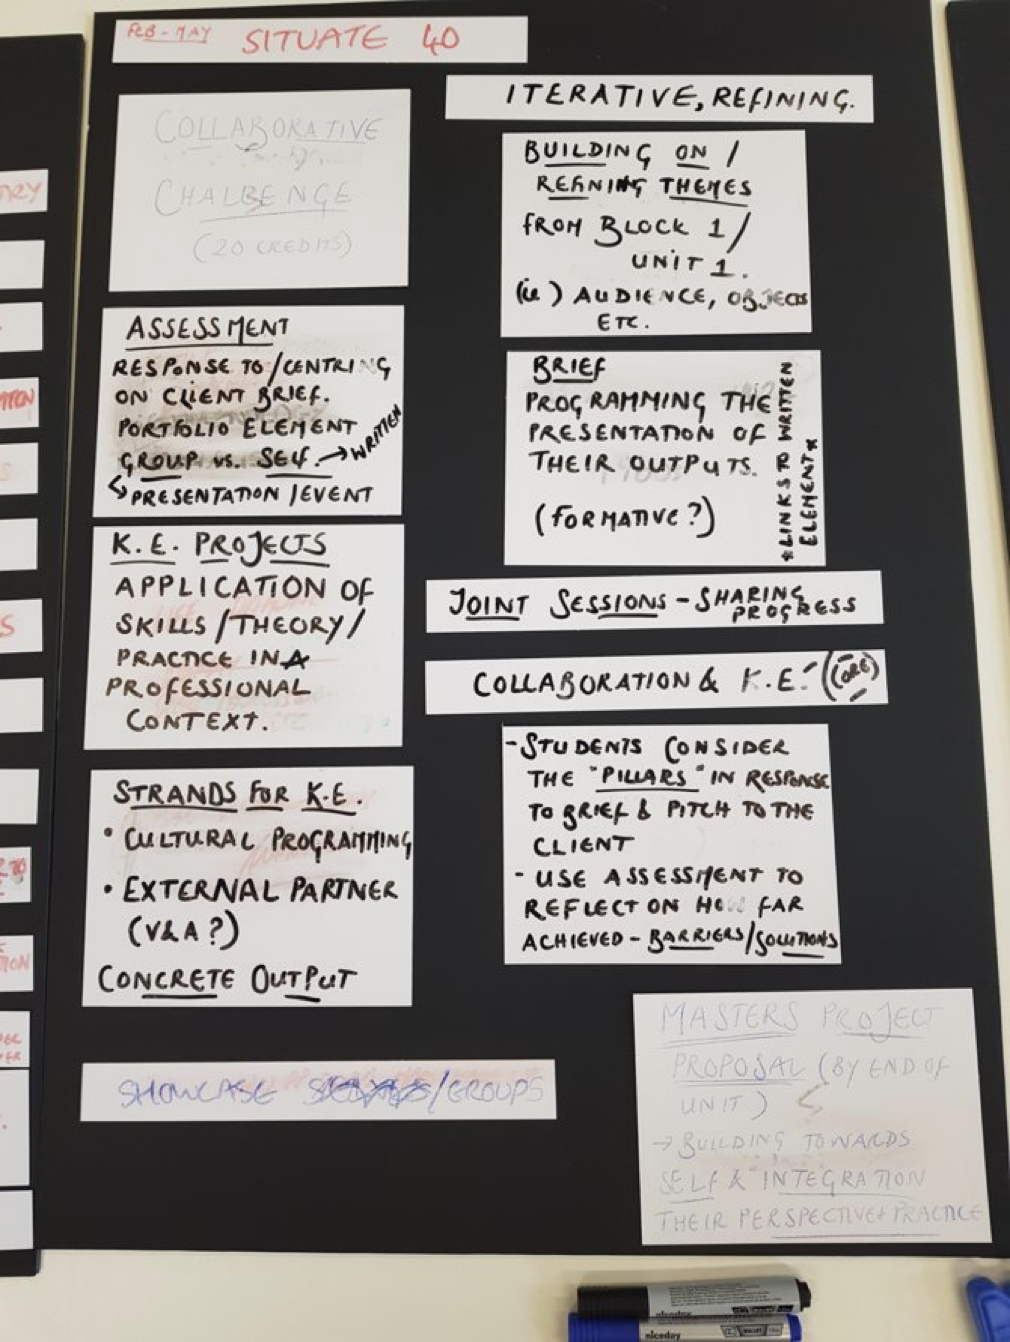 FEB-MAY SITUATE 40
COLLABORATIVE
CHALLENGE
(20 CREDITS)
ASSESSMENT
RESPONSE TO/CENTRING
ON CLIENT BRIEF.
PORTFOLIO ELEMENT
GROUP vs. SELF. → WRITTEN
↳ PRESENTATION/EVENT
K.E. PROJECTS
APPLICATION OF
SKILLS/THEORY/
PRACTICE IN A
PROFESSIONAL
CONTEXT.
STRANDS FOR K.E.
• CULTURAL PROGRAMMING
• EXTERNAL PARTNER
(V&A?)
CONCRETE OUTPUT
SHOWCASE /GROUPS
ITERATIVE, REFINING.
BUILDING ON /
REFINING THEMES
FROM BLOCK 1/
UNIT 1.
(ie) AUDIENCE, OBJECTS
ETC.
BRIEF
PROGRAMMING THE
PRESENTATION OF
THEIR OUTPUTS.
(FORMATIVE?)
*LINKS TO WRITTEN
ELEMENT*
JOINT SESSIONS - SHARING
PROGRESS
COLLABORATION & K.E. (CORE)
- STUDENTS CONSIDER
THE "PILLARS" IN RESPONSE
TO BRIEF & PITCH TO THE
CLIENT
- USE ASSESSMENT TO
REFLECT ON HOW FAR
ACHIEVED - BARRIERS/SOLUTIONS
MASTERS PROJECT
PROPOSAL (BY END OF
UNIT)
→ BUILDING TOWARDS
SELF & INTEGRATION
THEIR PERSPECTIVE + PRACTICE
niceday
niceday